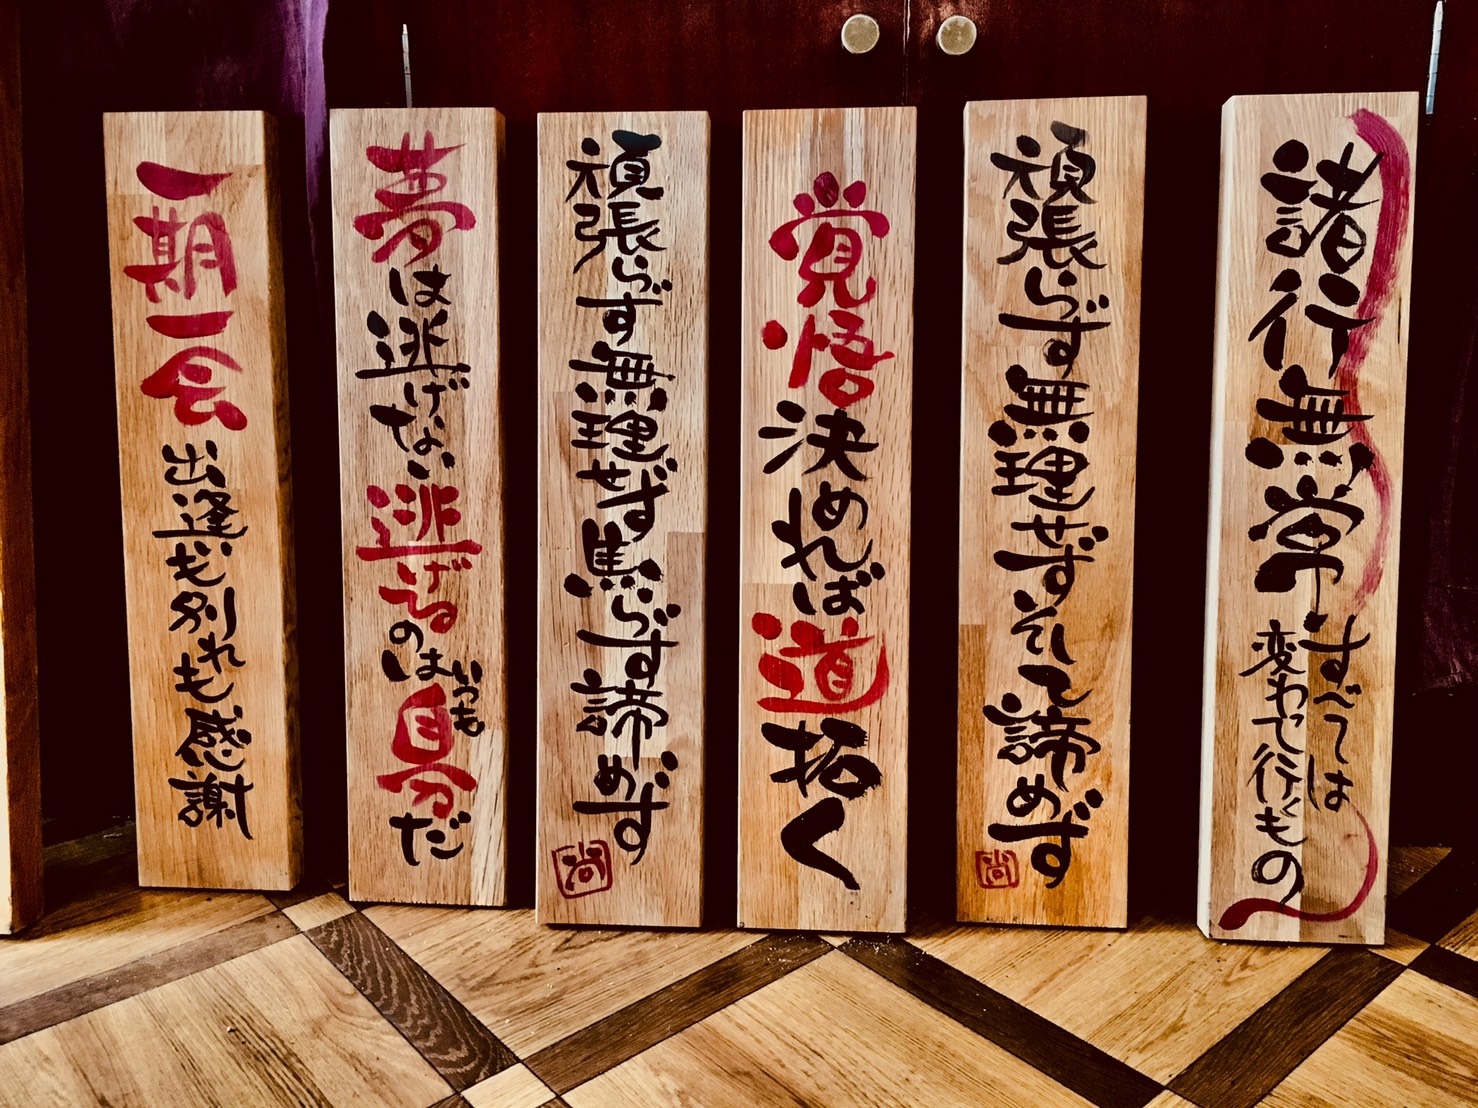 一期一会
出逢いも別れも感謝
夢は逃げない逃げるのはいつも自分だ
頑張らず無理せず焦らず諦めず
尚
覚悟決めれば道拓く
頑張らず無理せずそして諦めず
尚
諸行無常
すべては
変わって行くもの